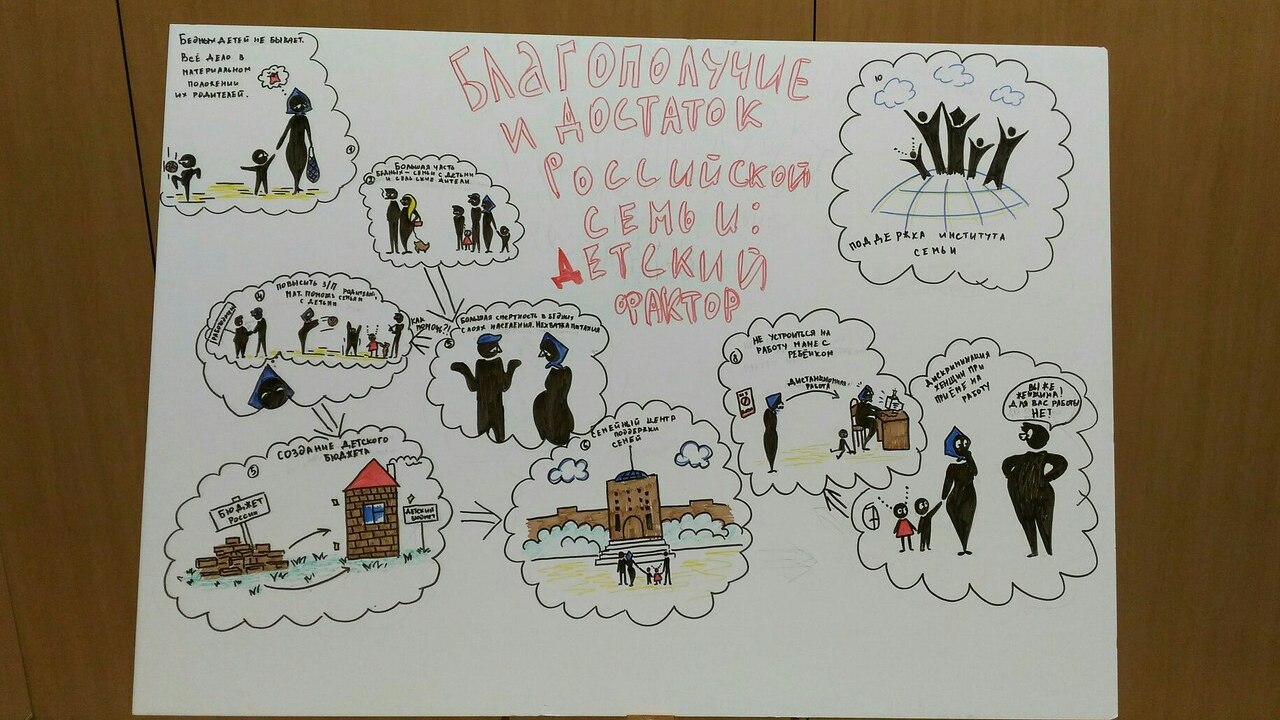 БЛАГОПОЛУЧИЕ
И ДОСТАТОК
РОССИЙСКОЙ
СЕМЬИ:
ДЕТСКИЙ
ФАКТОР
БЕДНЫХ ДЕТЕЙ НЕ БЫВАЕТ.
ВСЁ ДЕЛО В
МАТЕРИАЛЬНОМ
ПОЛОЖЕНИИ
ИХ РОДИТЕЛЕЙ.
2
БОЛЬШАЯ ЧАСТЬ
БЕДНЫХ – СЕМЬИ С ДЕТЬМИ
И СЕЛЬСКИЕ ЖИТЕЛИ.
БОЛЬШАЯ СМЕРТНОСТЬ В БЕДНЫХ
СЛОЯХ НАСЕЛЕНИЯ. НЕХВАТКА ПИТАНИЯ
КАК
ПОМОЧЬ?!
4
ПОВЫСИТЬ З/П
МАТ. ПОМОЩЬ
С ДЕТЬМИ
5
СОЗДАНИЕ ДЕТСКОГО
БЮДЖЕТА
БЮДЖЕТ
РОССИИ
ДЕТСКИЙ
БЮДЖЕТ
6
СЕМЕЙНЫЙ ЦЕНТР
ПОДДЕРЖКИ
СЕМЕЙ
7
ДИСКРИМИНАЦИЯ
ЖЕНЩИН ПРИ
ПРИЁМЕ НА
РАБОТУ
ВЫ ЖЕ
ЖЕНЩИНА!
ДЛЯ ВАС РАБОТЫ
НЕТ!
8
НЕ УСТРОИТЬСЯ НА
РАБОТУ МАМЕ С
РЕБЁНКОМ
ДИСТАНЦИОННАЯ
РАБОТА
10
ПОДДЕРЖКА ИНСТИТУТА
СЕМЬИ